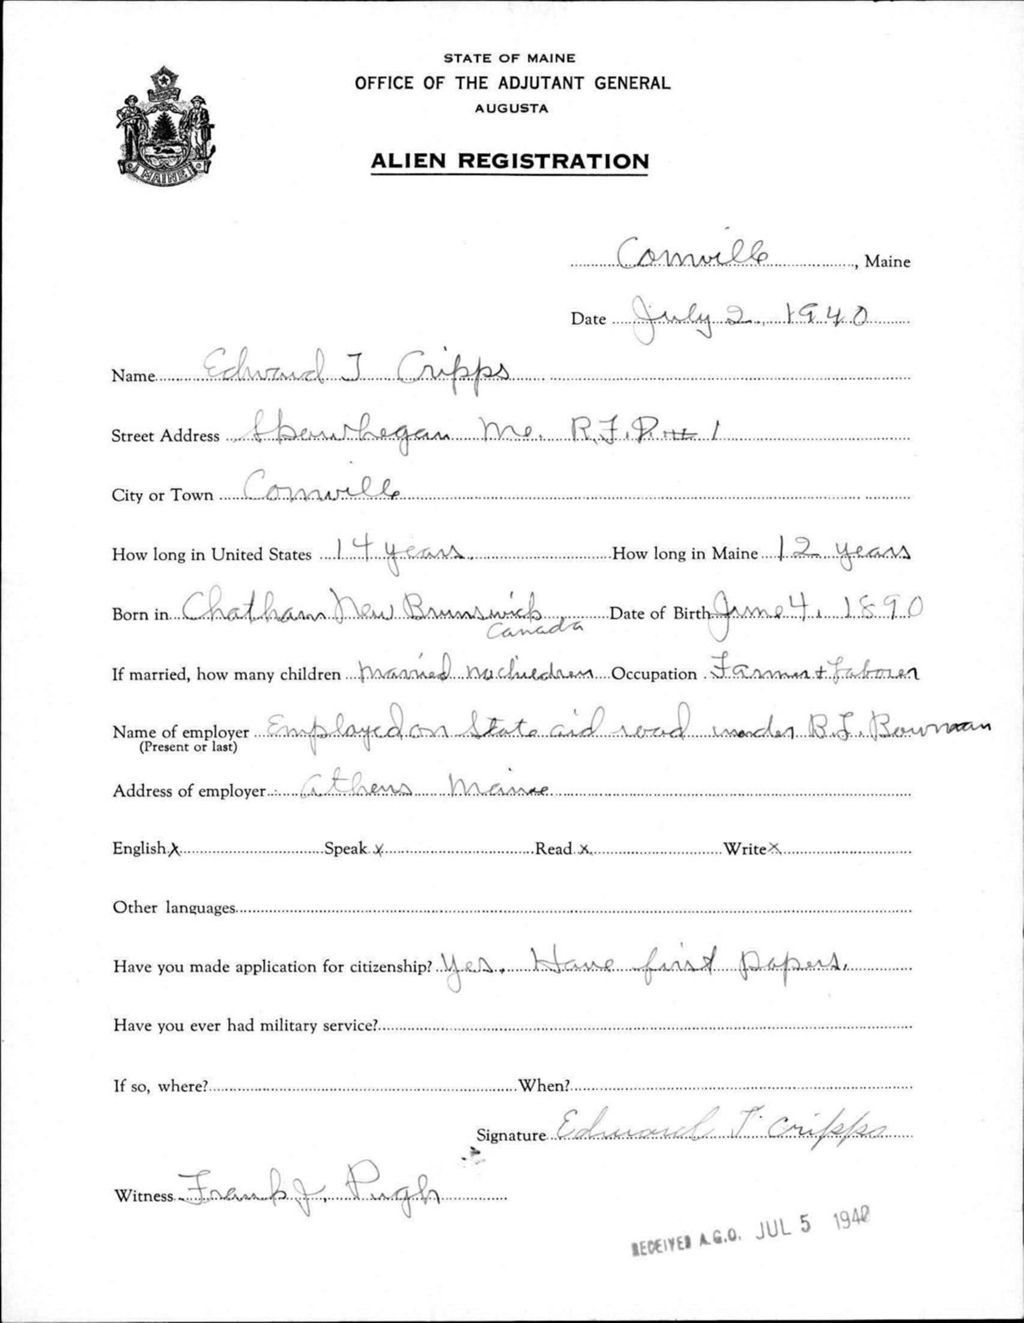 STATE OF MAINE
OFFICE OF THE ADJUTANT GENERAL
AUGUSTA
ALIEN REGISTRATION
MAINE
Cornville, Maine
Date July 2, 1940
Name Edward T Cripps
Street Address Skowhegan Me. R.F.D. 1
City or Town Cornville
How long in United States 14 years How long in Maine 12 years
Born in Chatham New Brunswick Canada Date of Birth June 4, 1890
If married, how many children Married no children Occupation Farmer + Laborer
Name of employer Employed on State aid road under B.L. Bowman
(Present or last)
Address of employer Athens Maine
English x Speak x Read x Write x
Other languages
Have you made application for citizenship? Yes. Have first papers.
Have you ever had military service?
If so, where? When?
Signature Edward T. Cripps
Witness Frank J. Pugh
RECEIVED A.G.O. JUL 5 1940